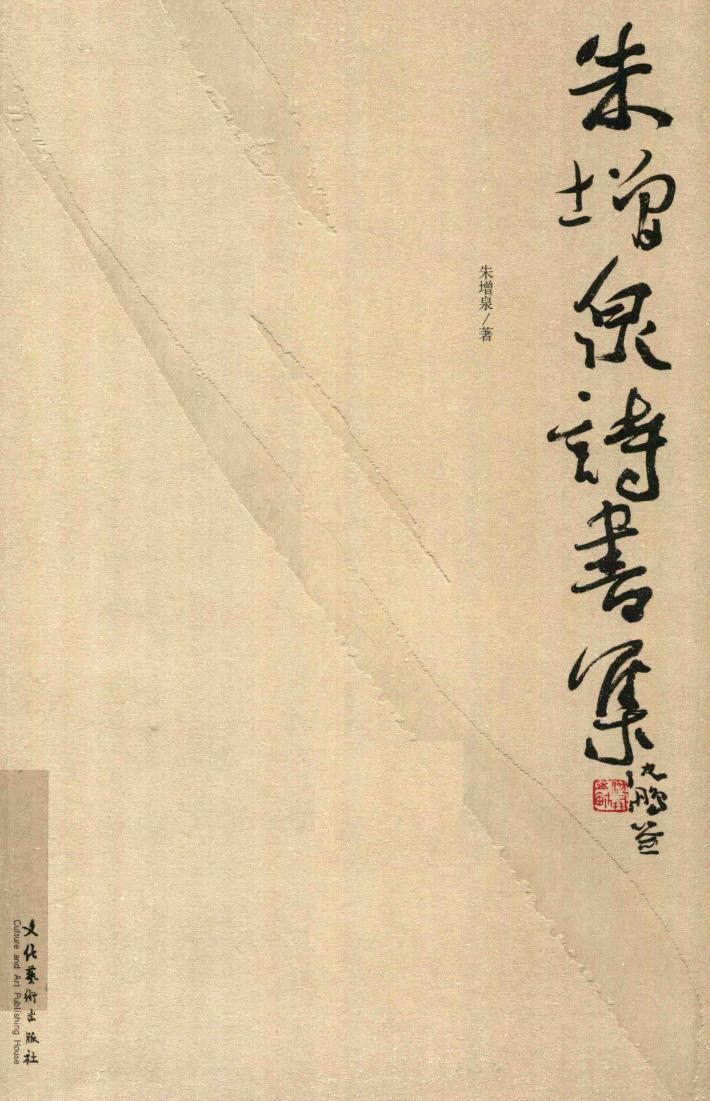 朱增泉詩書集
沈鹏
朱增泉/著
文化藝術出版社
Culture and Art Publishing House